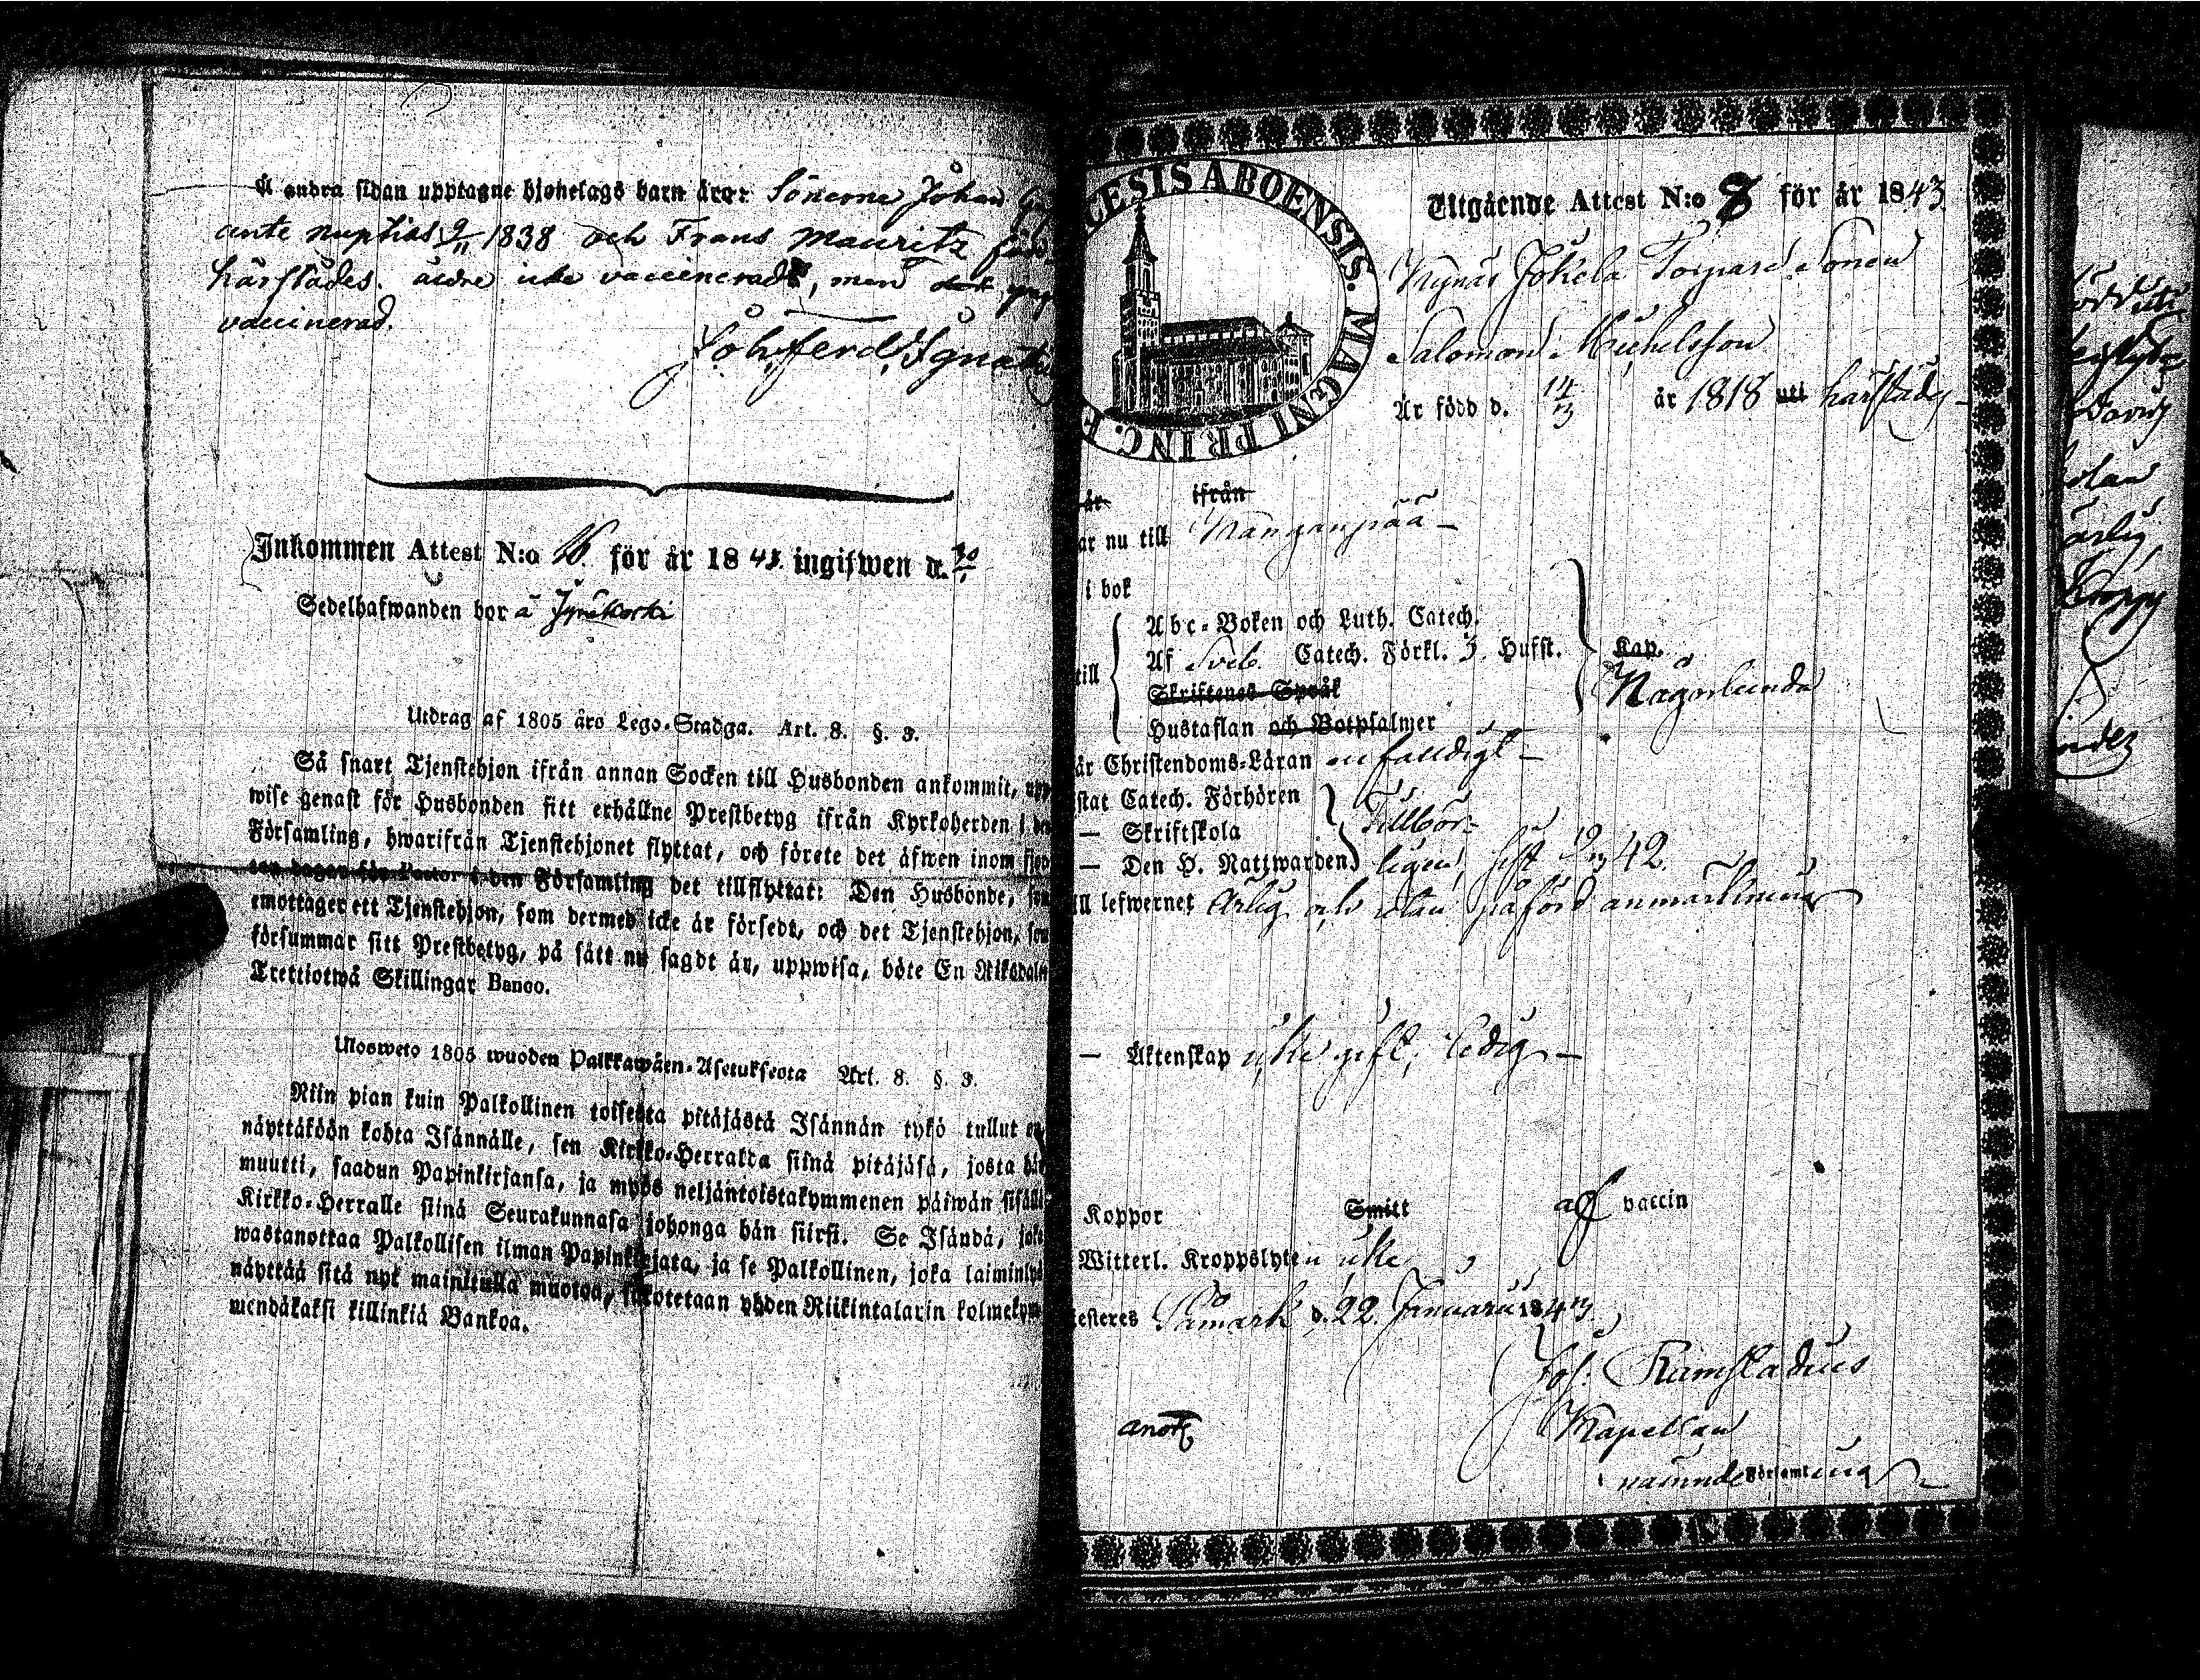 Å andra sidan upptagne hjonelags barn äro: Sönerne Johan
ante nuptias 9/11 1838 och Frans Mauritz
härstädes. äldre icke vaccinerad, men
vaccinerad.
Joh. Ferd. Ignati
Inkommen Attest N:o 16. för år 1843 ingifwen d. 30/1
Sedelhafwanden bor å Jyräkoski
Utdrag af 1805 års Lego-Stadga. Art. 8. §. 3.
Så snart Tjenstehjon ifrån annan Socken till Husbonden ankommit, upp
wise genast för Husbonden sitt erhållne Prestbetyg ifrån Kyrkoherden i den
Församling, hwarifrån Tjenstehjonet flyttat, och förete det äfwen inom fjor
ton dagar för Pastor i den Församling det tillflyttat: Den Husbonde, som
emottager ett Tjenstehjon, som dermed icke är försedt, och det Tjenstehjon, som
försummar sitt Prestbetyg, på sätt nu sagdt är, uppwisa, böte En Riksdaler
Trettiotwå Skillingar Banco.
Ulosweto 1805 wuoden Palkkawäen-Asetuksesta Art. 8. §. 3.
Niin pian kuin Palkollinen toisesta pitäjästä Isännän tykö tullut on
näyttäköön kohta Isännälle, sen Kirkko-Herralda siinä pitäjäsä, josta hän
muutti, saadun Papinkirjansa, ja myös neljäntoistakymmenen päiwän sisällä
Kirkko-Herralle siinä Seurakunnasa johonga hän siirsi. Se Isändä, joka
wastanottaa Palkollisen ilman Papinkirjata, ja se Palkollinen, joka laiminlyö
näyttää sitä nyt mainitulla muotoa, sakotetaan yhden Riikintalarin kolmekym
mendäkaksi killinkiä Bankoa.
CESIS ABOENSIS. MAGNI PRINC. F
Utgående Attest N:o 8 för år 1843
Kynäs Jokela Torpare Sonen
Salomon Michelsson
Är född d. 14/3 år 1818 uti härstädes
år ifrån
ar nu till Kangaanpää
i bok
Abc-Boken och Luth. Catech.
till Af Sveb. Catech. Förkl. 3. Hufst. Kap.
Skriftenes Språk Någorlunda
Hustaflan och Botpsalmer
år Christendoms-Läran enfaldigt
stat Catech. Förhören Tillbör-
— Skriftskola
— Den H. Nattwarden ligen, sist 42.
ll lefwernet Ärlig och utan påförd anmärkning
— Äktenskap icke gift, ledig
Koppor Smitt af vaccin
Witterl. Kroppslyten icke
esteres Påmark d. 22. Januarii 1843.
Jos. Ramstadius
Kapellan
nämnde Församling
anot